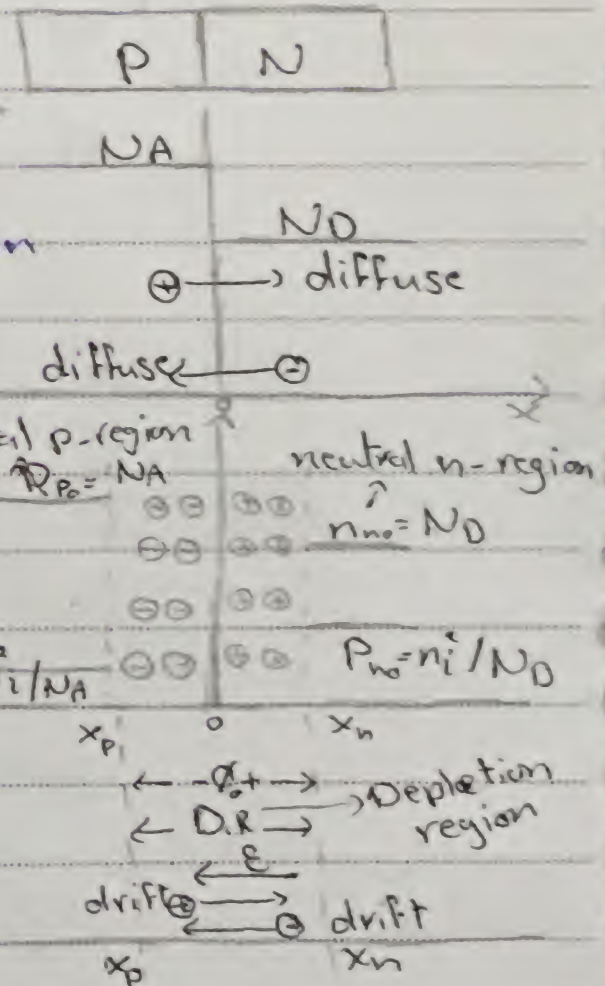 P N
NA
ND
⊕ → diffuse
diffuse ← ⊖
x
p-region
neutral n-region
Pp₀ = NA
⊖⊖ ⊕⊕
nn₀ = ND
⊖⊖ ⊕⊕
⊖⊖ ⊕⊕
i/NA ⊖⊖ ⊕⊕ Pn₀ = ni²/ND
xp 0 xn
← -Ø₀+ →
← D.R → → Depletion
region
← ε
drift ⊕ →
← ⊖ drift
xp xn